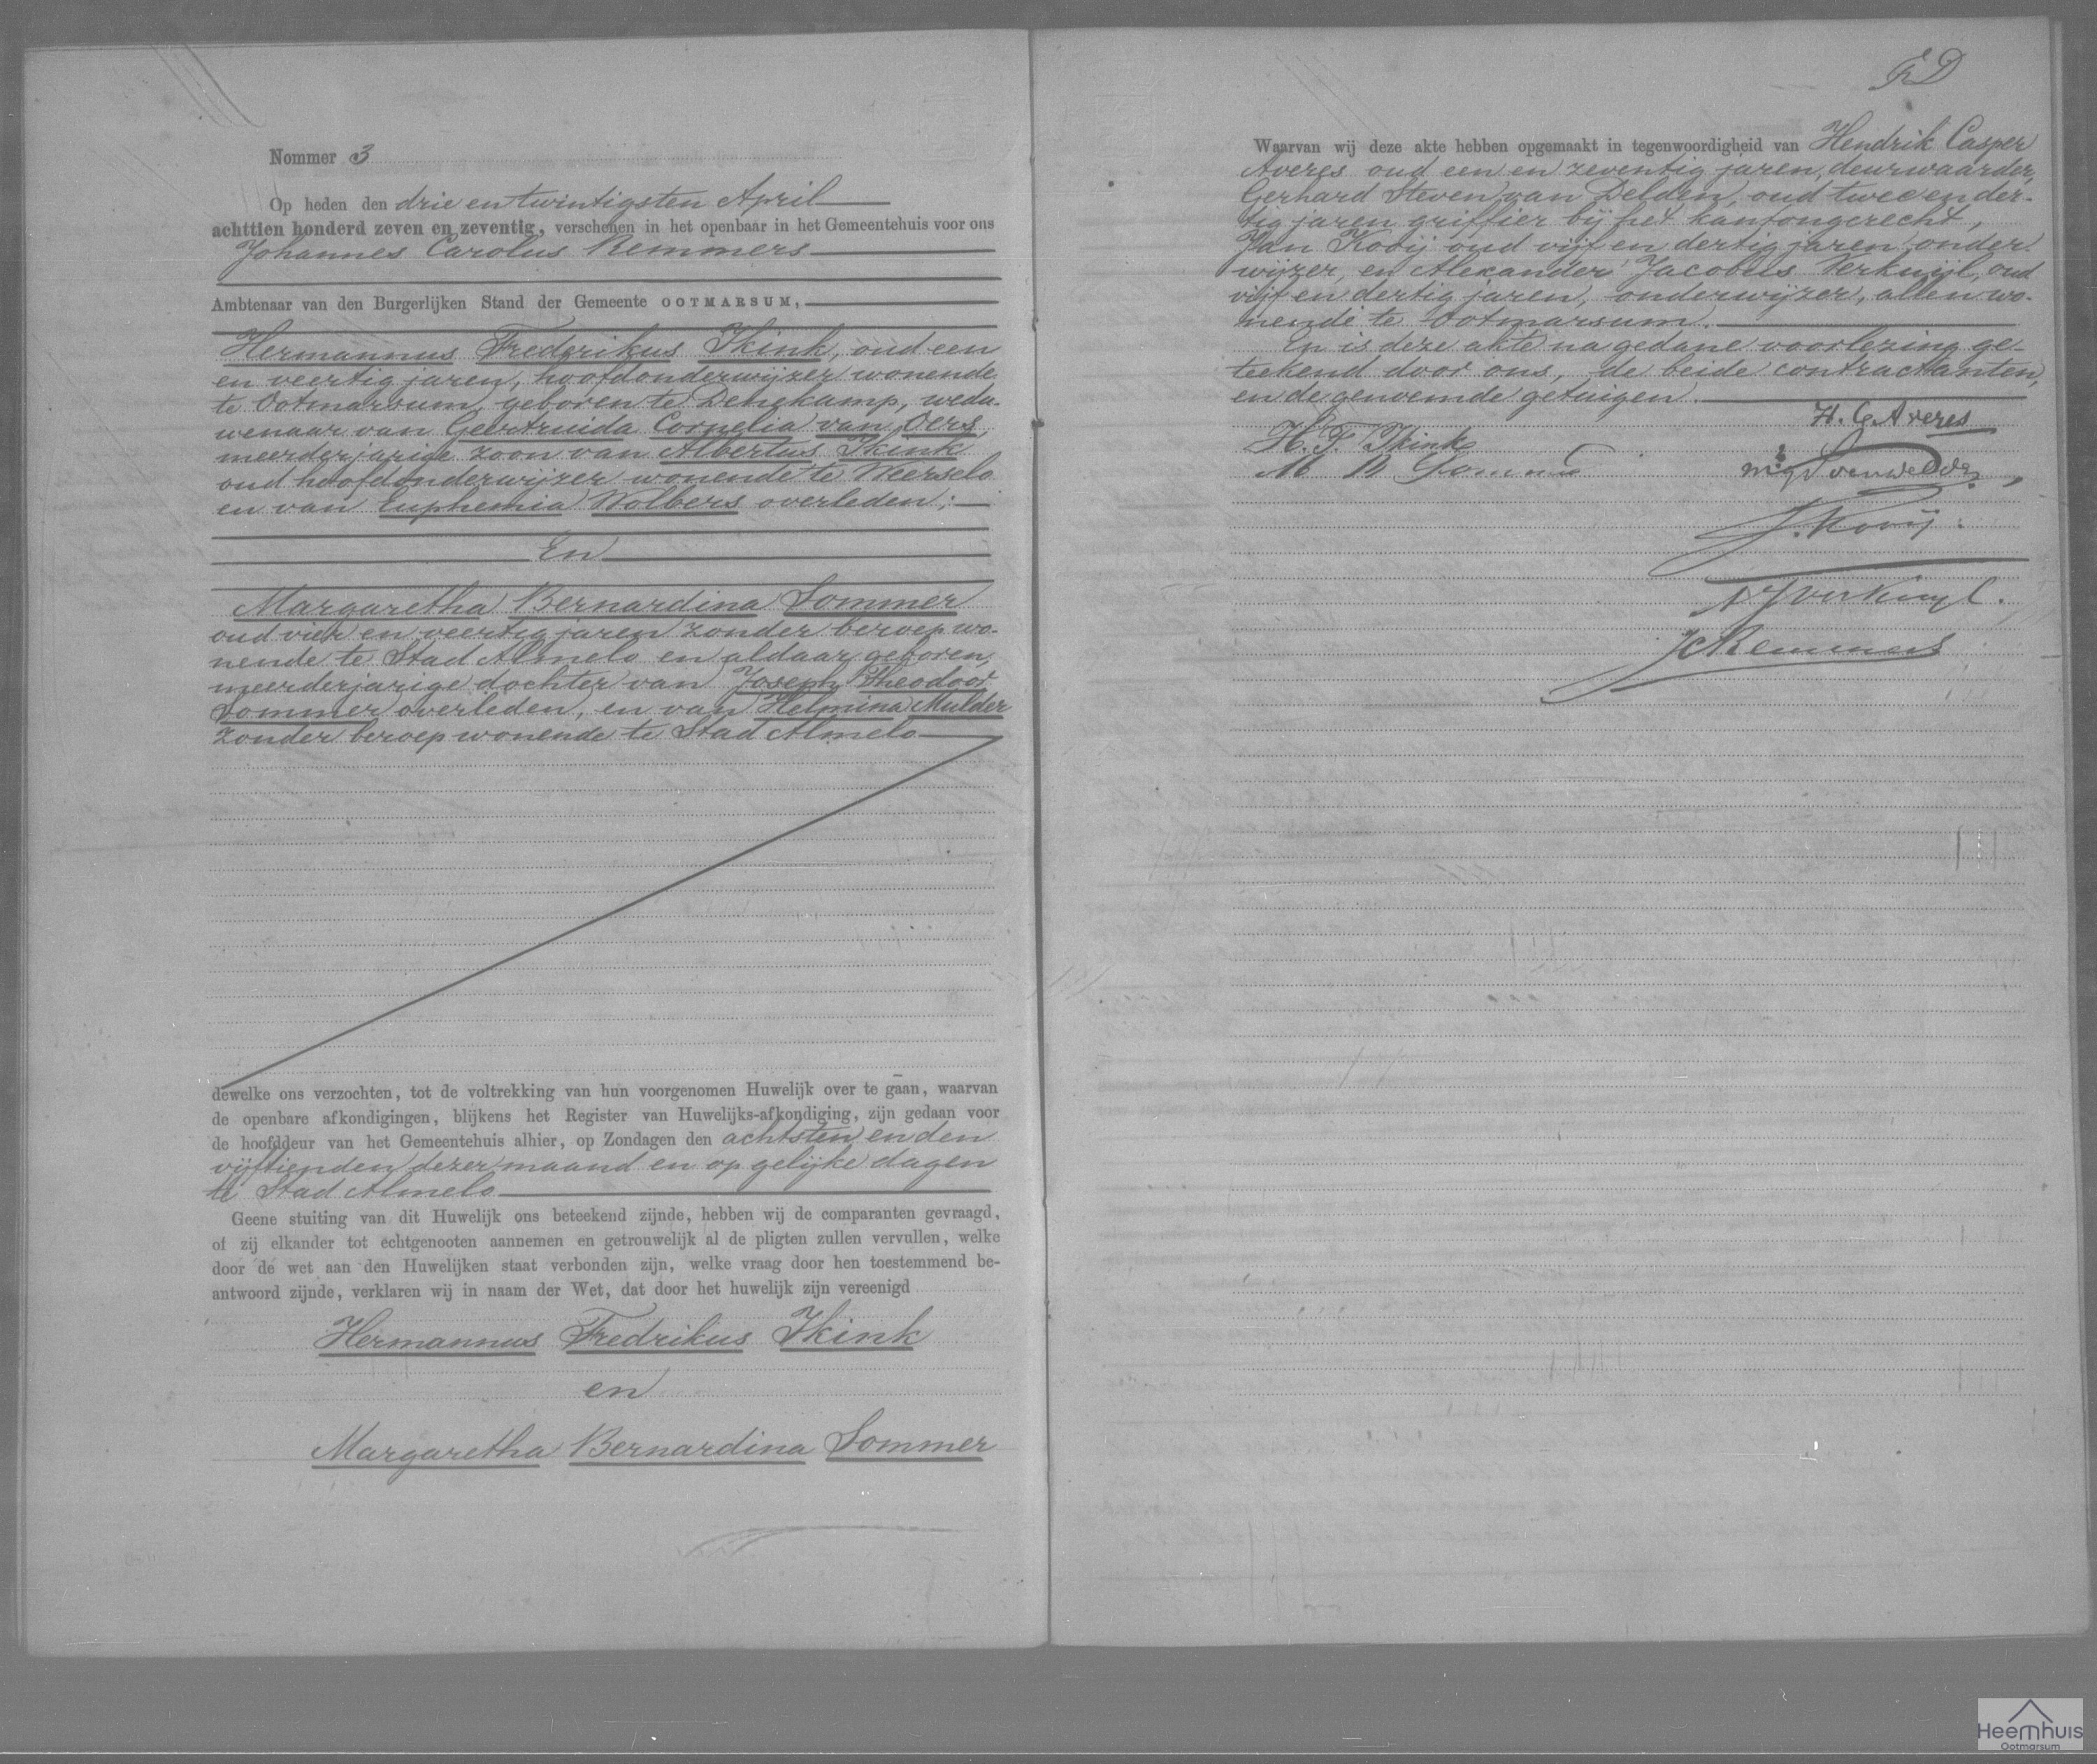 Nommer 3
Op heden den drie en twintigsten April
achttien honderd zeven en zeventig, verschenen in het openbaar in het Gemeentehuis voor ons
Johannes Carolus Remmers
Ambtenaar van den Burgerlijken Stand der Gemeente OOTMARSUM,
Hermannus Fredrikus Ikink, oud een
en veertig jaren, hoofdonderwijzer wonende
te Ootmarsum, geboren te Denekamp, wedu-
wenaar van Geertruida Cornelia van Oers,
meerderjarige zoon van Albertus Ikink
oud hoofdonderwijzer wonende te Weerselo
en van Euphemia Wolbers overleden;
En
Margaretha Bernardina Sommer
oud vier en veertig jaren zonder beroep wo-
nende te Stad Almelo en aldaar geboren,
meerderjarige dochter van Joseph Theodoor
Sommer overleden, en van Helmina Mulder
zonder beroep wonende te Stad Almelo
dewelke ons verzochten, tot de voltrekking van hun voorgenomen Huwelijk over te gaan, waarvan
de openbare afkondigingen, blijkens het Register van Huwelijks-afkondiging, zijn gedaan voor
de hoofddeur van het Gemeentehuis alhier, op Zondagen den achtsten en den
vijftienden dezer maand en op gelijke dagen
te Stad Almelo
Geene stuiting van dit Huwelijk ons beteekend zijnde, hebben wij de comparanten gevraagd,
of zij elkander tot echtgenooten aannemen en getrouwelijk al de pligten zullen vervullen, welke
door de wet aan den Huwelijken staat verbonden zijn, welke vraag door hen toestemmend be-
antwoord zijnde, verklaren wij in naam der Wet, dat door het huwelijk zijn vereenigd
Hermannus Fredrikus Ikink
en
Margaretha Bernardina Sommer
Waarvan wij deze akte hebben opgemaakt in tegenwoordigheid van Hendrik Casper
Averes oud een en zeventig jaren, deurwaarder,
Gerhard Steven van Delden, oud twee en der-
tig jaren griffier bij het kantongerecht,
Jan Kooij oud vijf en dertig jaren onder-
wijzer, en Alexander Jacobus Verkuijl, oud
vijf en dertig jaren, onderwijzer, allen wo-
nende te Ootmarsum.
En is deze akte na gedane voorlezing ge-
teekend door ons, de beide contractanten,
en de genoemde getuigen.
H. C. Averes
H. F. Ikink
M B Sommer
J. Kooij.
A J Verkuijl.
JCRemmers
Heemhuis
Ootmarsum